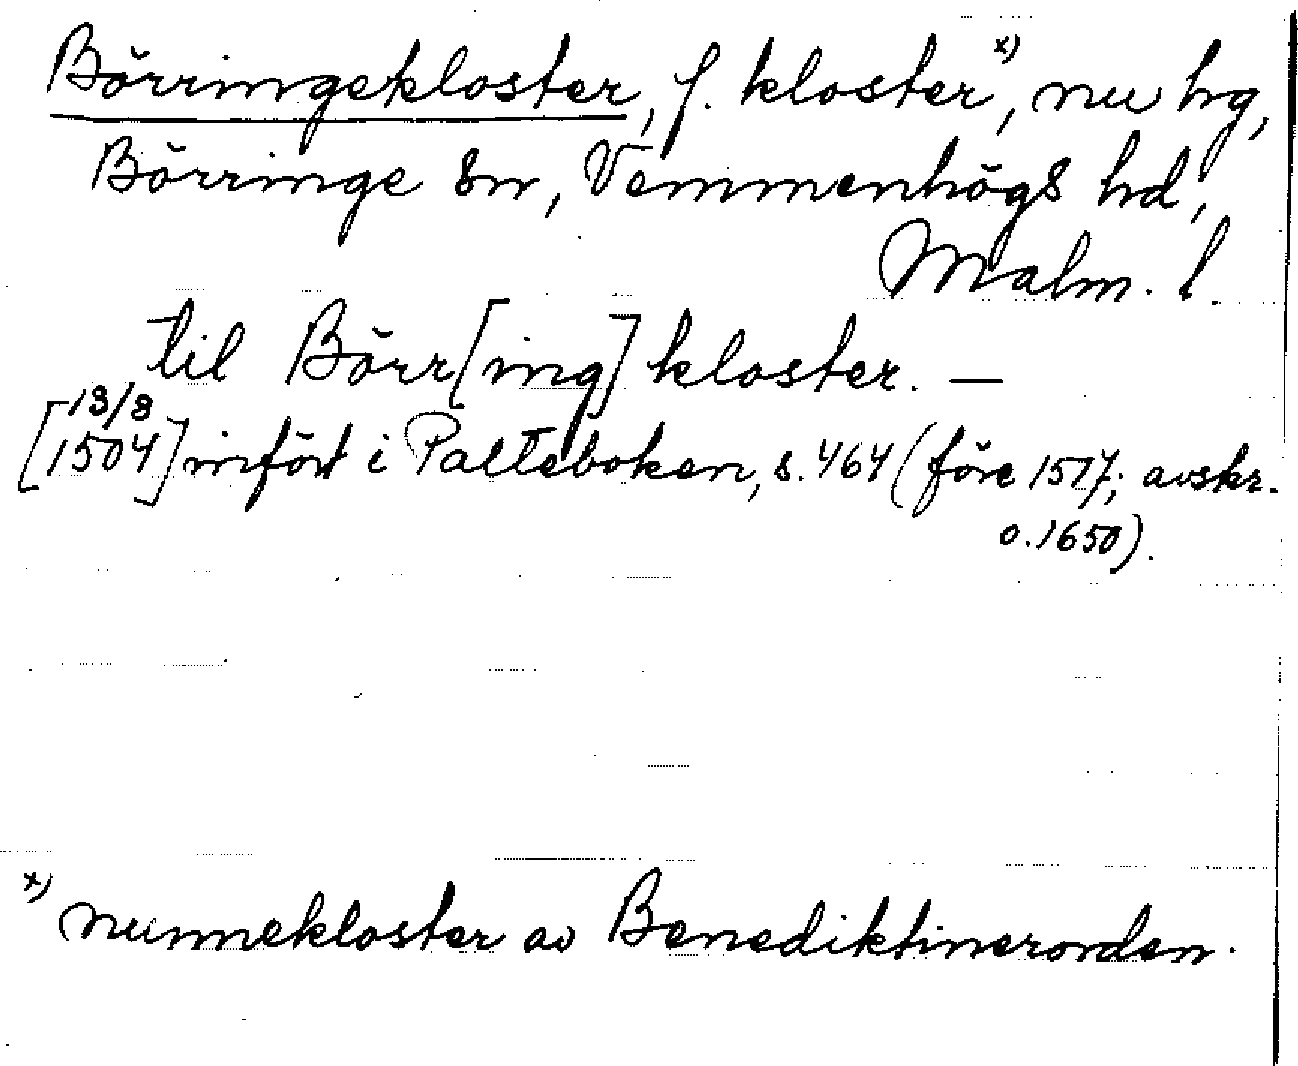 Börringekloster, f. kloster x), nu hg,
Börringe sn, Vemmenhögs hd,
Malm. l.
til Börr[ing]kloster. —
[13/8
1504] infört i Palteboken, s. 464 (före 1517; avskr.
o. 1650).
x) nunnekloster av Benediktinerorden.